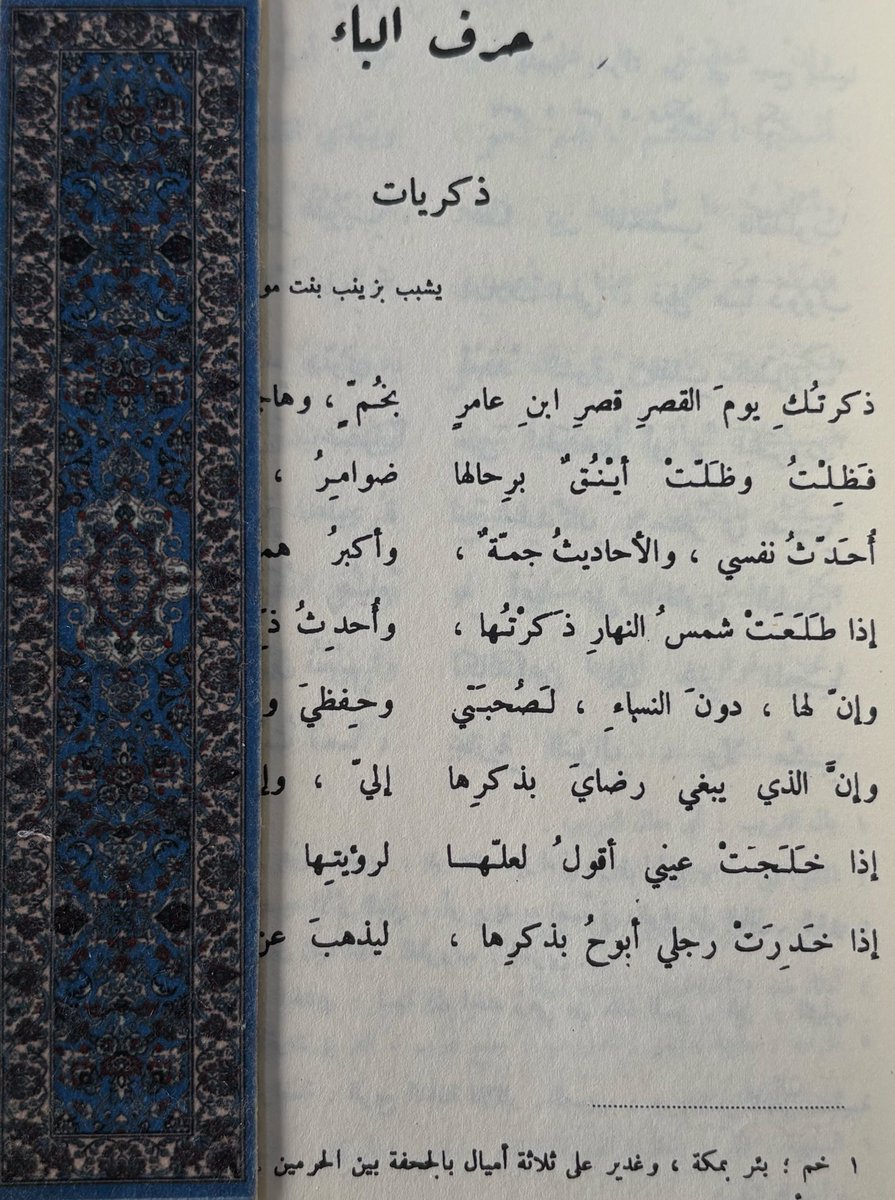 حرف الباء
ذكريات
يشبب بزينب بنت
ذكرتُكِ يومَ القصرِ قصرِ ابنِ عامرٍ بخُمٍّ ،
فَظِلْتُ وظَلَّتْ أيْنُقٌ برِحالها ضوامِرُ ،
أُحَدّثُ نفسي ، والأحاديثُ جمّةٌ ، وأكبرُ
إذا طَلَعَتْ شمسُ النهارِ ذكرْتُها ، وأُحدِثُ
وإنّ لها ، دونَ النساءِ ، لَصُحبَتي وحِفظيَ
وإنَّ الذي يبغي رضايَ بذكرِها إليّ ،
إذا خَلَجَتْ عيني أقولُ لعلّها لرؤيتِها
إذا خَدِرَتْ رجلي أبوحُ بذكرِها ، ليذهبَ
١ خم ؛ بئر بمكة ، وغدير على ثلاثة أميال بالجحفة بين الحرمين .